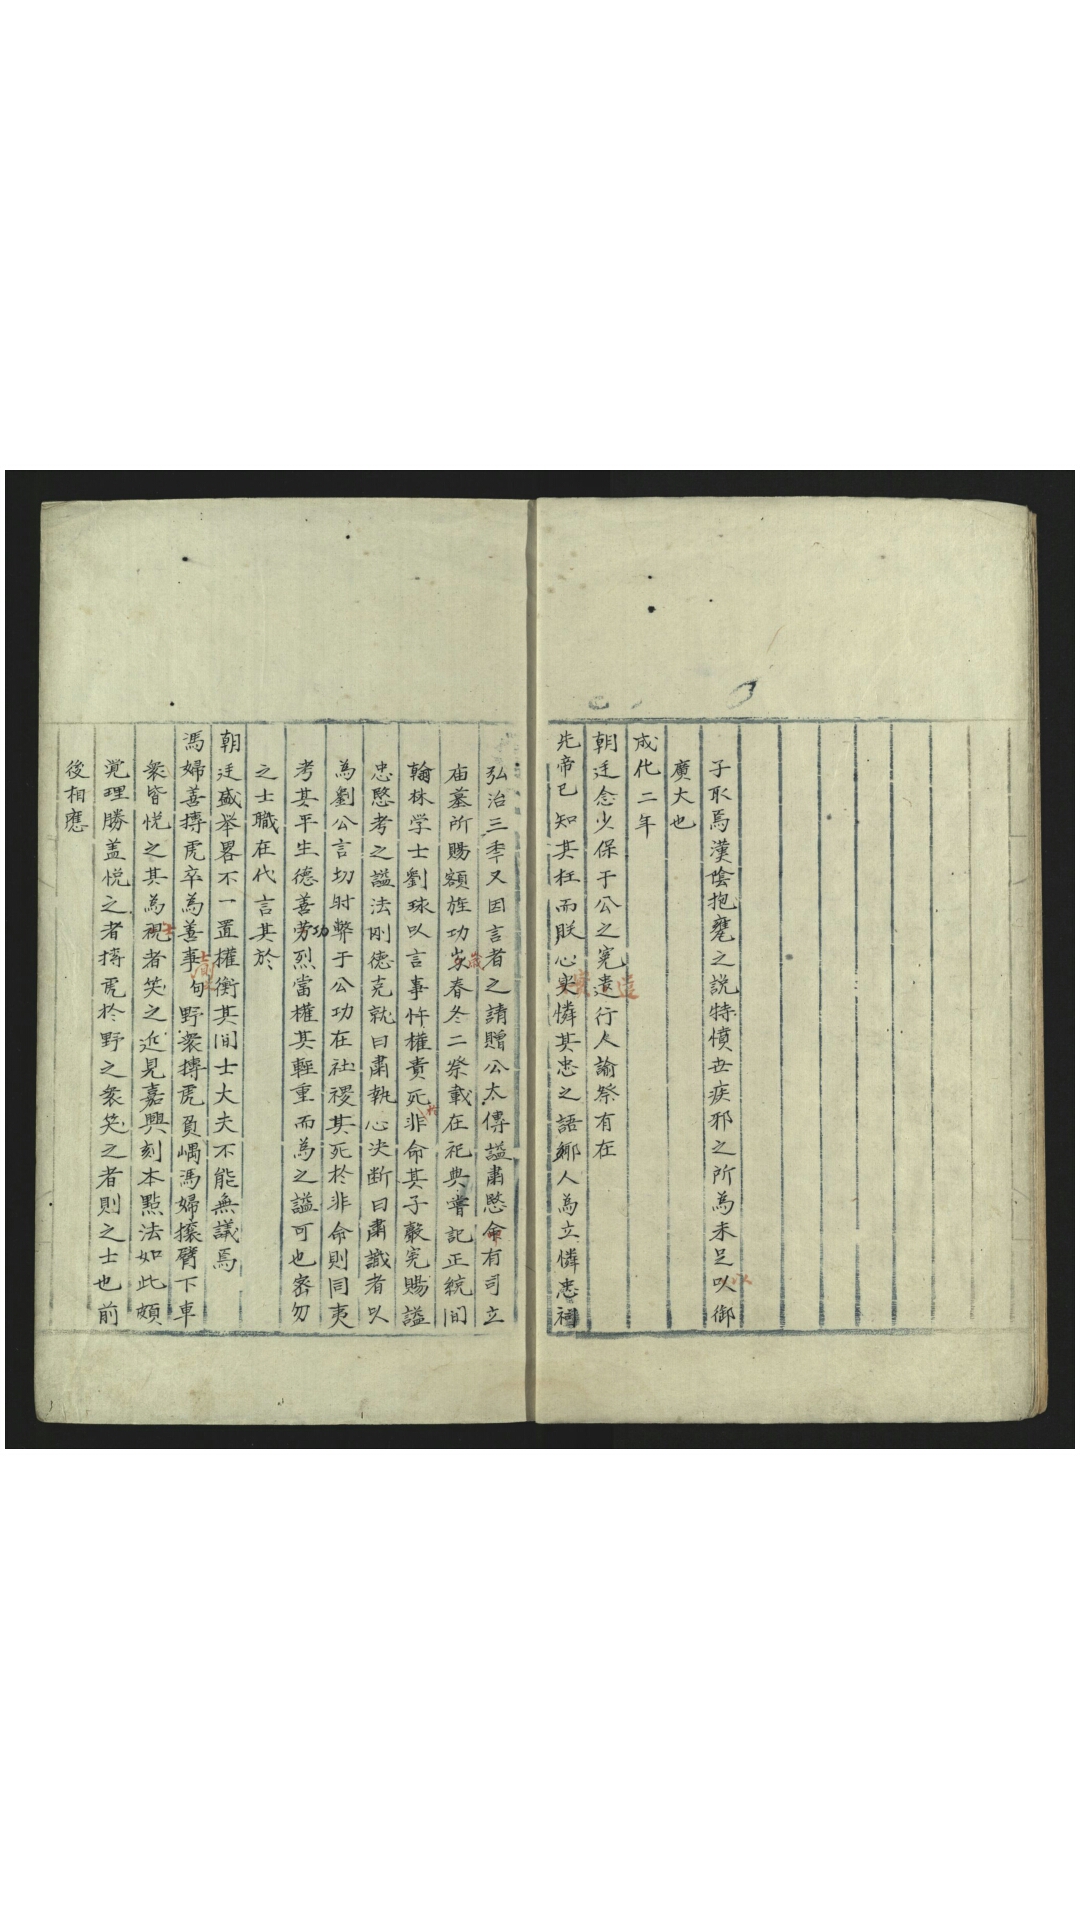 子取焉漢陰抱甕之説特憤世疾邪之所為未足以御
廣大也
成化二年
朝廷念少保于公之寃遣行人諭祭有在
先帝已知其枉而朕心実憐其忠之語鄉人為立憐忠祠
弘治三年又因言者之請贈公太傅謚肅愍命有司立
庙墓所賜額旌功歲春冬二祭載在祀典嘗記正統間
翰林学士劉球以言事忤權貴死非命其子籲寃賜謚
忠愍考之謚法剛德克就曰肅執心决断曰肅識者以
為劉公言切时弊于公功在社稷其死於非命則同夷
考其平生德善功烈當權其輕重而為之謚可也密勿
之士職在代言其於
朝廷盛举畧不一置權衡其间士大夫不能無議焉
馮婦善搏虎卒為善事句野衆搏虎負嵎馮婦攘臂下車
衆皆悦之其為視者笑之近見嘉興刻本點法如此頗
覚理勝盖悦之者搏虎於野之衆笑之者則之士也前
後相應